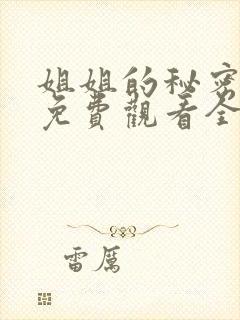 姐姐的秘密
免費觀看全
雷厲